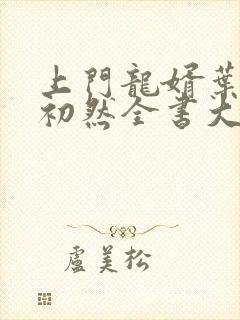 上門龍婿葉
初然全書大
盧美松